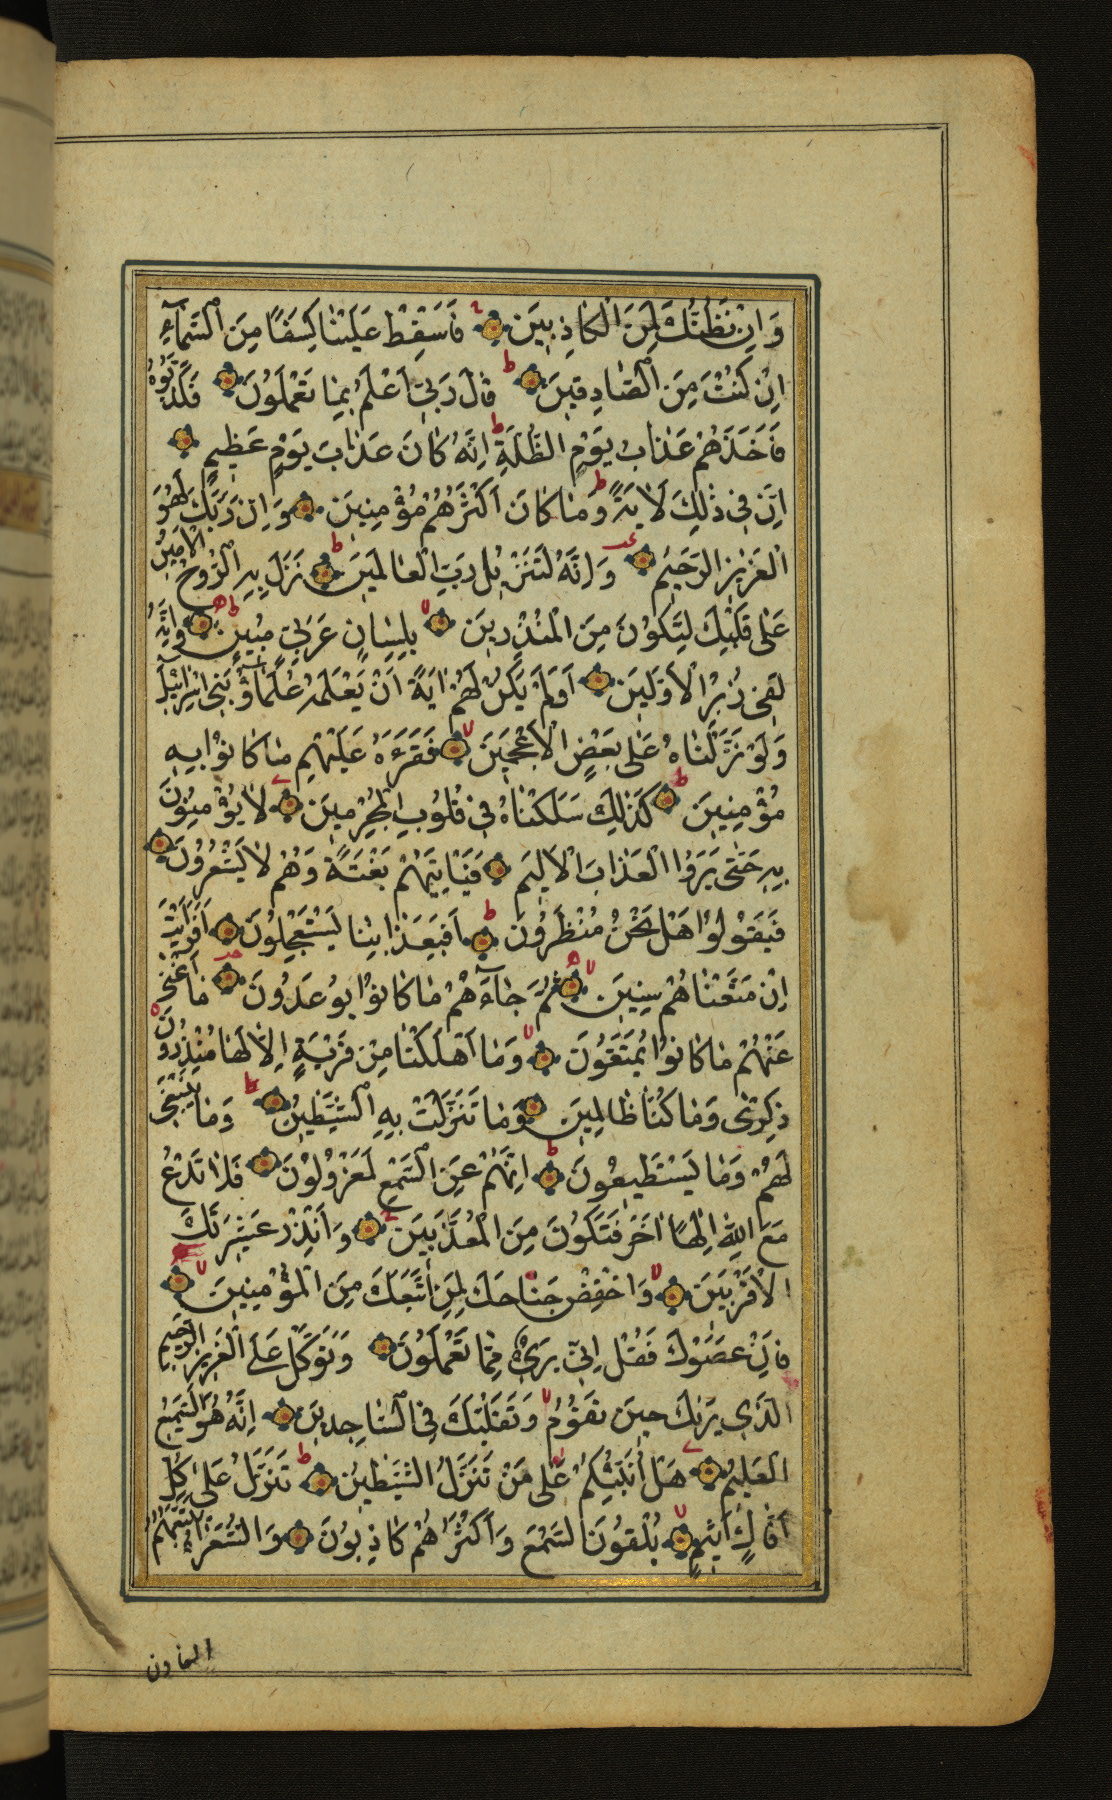 وَاِنْ نَظُنُّكَ لَمِنَ الْكَاذِبِينَ فَاَسْقِطْ عَلَيْنَا كِسَفًا مِنَ السَّمَآءِ
اِنْ كُنْتَ مِنَ الصَّادِقِينَ قَالَ رَبِّى اَعْلَمُ بِمَا تَعْمَلُونَ فَكَذَّبُوهُ
فَاَخَذَهُمْ عَذَابُ يَوْمِ الظُّلَّةِ اِنَّهُ كَانَ عَذَابَ يَوْمٍ عَظِيمٍ
اِنَّ فِى ذٰلِكَ لَاٰيَةً وَمَا كَانَ اَكْثَرُهُمْ مُؤْمِنِينَ وَاِنَّ رَبَّكَ لَهُوَ
الْعَزِيزُ الرَّحِيمُ وَاِنَّهُ لَتَنْزِيلُ رَبِّ الْعَالَمِينَ نَزَلَ بِهِ الرُّوحُ الْاَمِينُ
عَلٰى قَلْبِكَ لِتَكُونَ مِنَ الْمُنْذِرِينَ بِلِسَانٍ عَرَبِىٍّ مُبِينٍ وَاِنَّهُ
لَفِى زُبُرِ الْاَوَّلِينَ اَوَلَمْ يَكُنْ لَهُمْ اٰيَةً اَنْ يَعْلَمَهُ عُلَمَآؤُ بَنِى اِسْرَآئِيلَ
وَلَوْ نَزَّلْنَاهُ عَلٰى بَعْضِ الْاَعْجَمِينَ فَقَرَءَهُ عَلَيْهِمْ مَا كَانُوا بِهِ
مُؤْمِنِينَ كَذٰلِكَ سَلَكْنَاهُ فِى قُلُوبِ الْمُجْرِمِينَ لَا يُؤْمِنُونَ
بِهِ حَتّٰى يَرَوُا الْعَذَابَ الْاَلِيمَ فَيَاْتِيَهُمْ بَغْتَةً وَهُمْ لَا يَشْعُرُونَ
فَيَقُولُوا هَلْ نَحْنُ مُنْظَرُونَ اَفَبِعَذَابِنَا يَسْتَعْجِلُونَ اَفَرَاَيْتَ
اِنْ مَتَّعْنَاهُمْ سِنِينَ ثُمَّ جَآءَهُمْ مَا كَانُوا يُوعَدُونَ مَا اَغْنٰى
عَنْهُمْ مَا كَانُوا يُمَتَّعُونَ وَمَا اَهْلَكْنَا مِنْ قَرْيَةٍ اِلَّا لَهَا مُنْذِرُونَ
ذِكْرٰى وَمَا كُنَّا ظَالِمِينَ وَمَا تَنَزَّلَتْ بِهِ الشَّيَٰطِينُ وَمَا يَنْبَغِى
لَهُمْ وَمَا يَسْتَطِيعُونَ اِنَّهُمْ عَنِ السَّمْعِ لَمَعْزُولُونَ فَلَا تَدْعُ
مَعَ اللّٰهِ اِلٰهًا اٰخَرَ فَتَكُونَ مِنَ الْمُعَذَّبِينَ وَاَنْذِرْ عَشِيرَتَكَ
الْاَقْرَبِينَ وَاخْفِضْ جَنَاحَكَ لِمَنِ اتَّبَعَكَ مِنَ الْمُؤْمِنِينَ
فَاِنْ عَصَوْكَ فَقُلْ اِنِّى بَرِىٓءٌ مِمَّا تَعْمَلُونَ وَتَوَكَّلْ عَلَى الْعَزِيزِ الرَّحِيمِ
الَّذِى يَرٰيكَ حِينَ تَقُومُ وَتَقَلُّبَكَ فِى السَّاجِدِينَ اِنَّهُ هُوَ السَّمِيعُ
الْعَلِيمُ هَلْ اُنَبِّئُكُمْ عَلٰى مَنْ تَنَزَّلُ الشَّيَٰطِينُ تَنَزَّلُ عَلٰى كُلِّ
اَفَّاكٍ اَثِيمٍ يُلْقُونَ السَّمْعَ وَاَكْثَرُهُمْ كَاذِبُونَ وَالشُّعَرَآءُ يَتَّبِعُهُمُ
الغاون